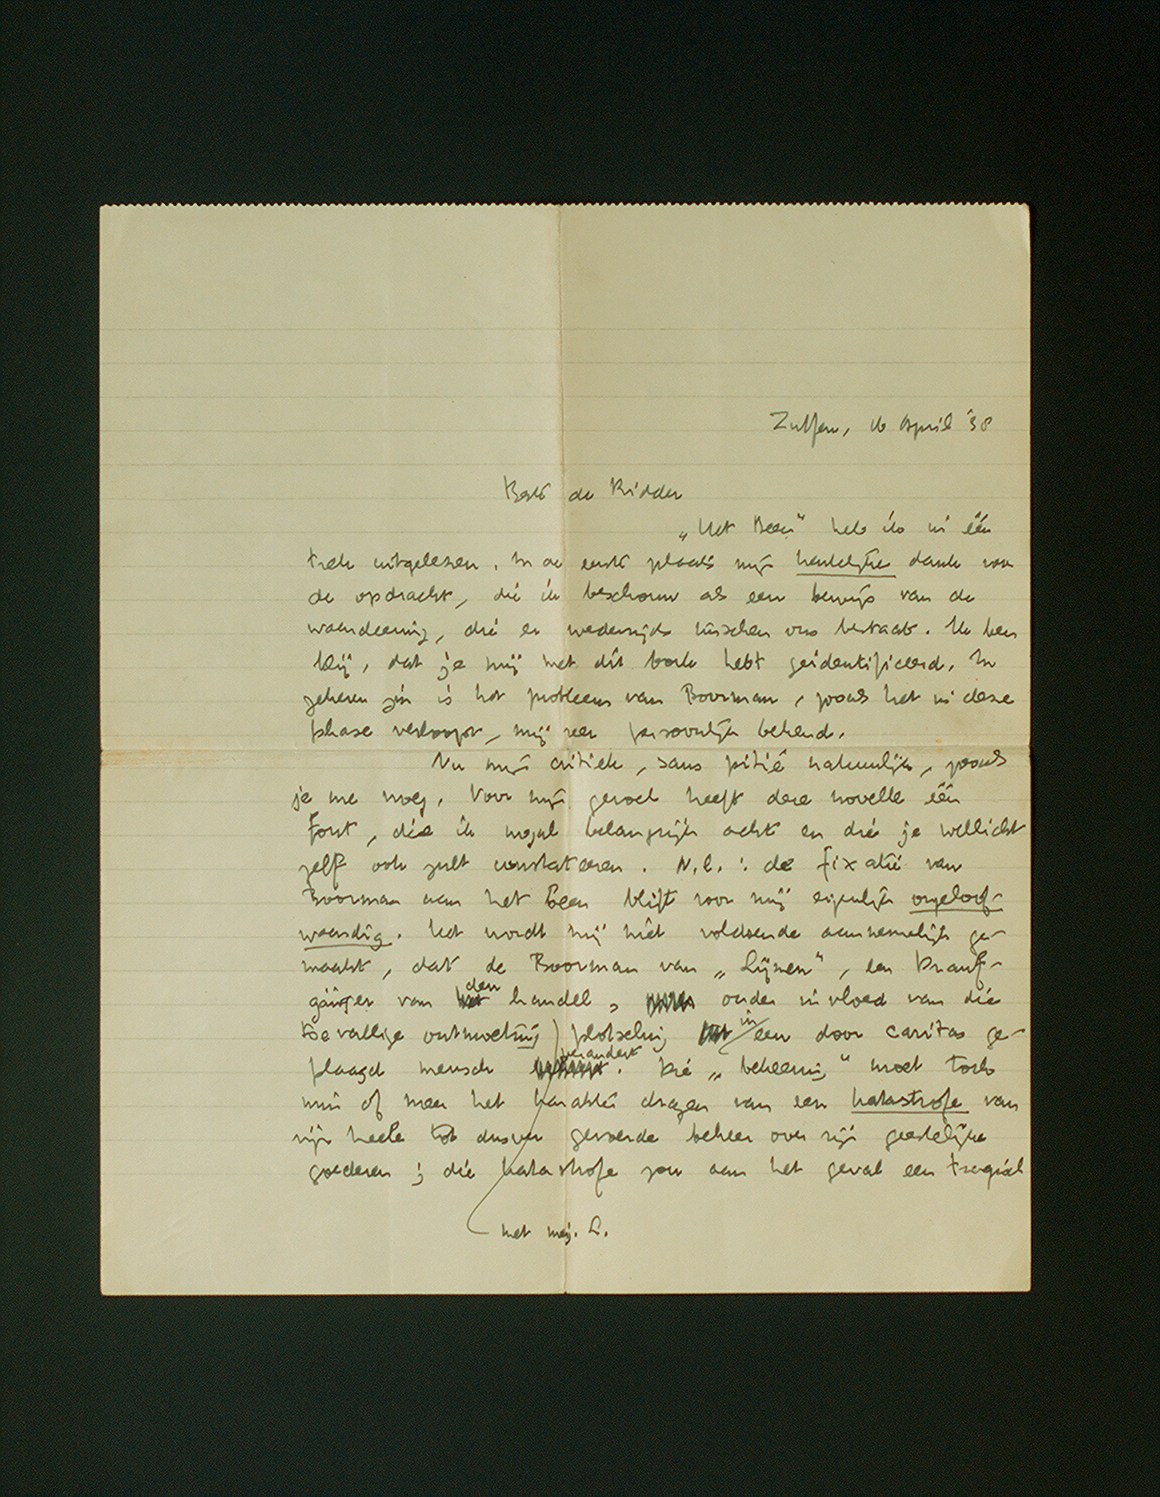 Zutfen, 16 April '38
Beste de Ridder
„Het Been” heb ik in één
trek uitgelezen. In de eerste plaats mijn hartelijke dank voor
de opdracht, die ik beschouw als een bewijs van de
waardeering, die er wederzijds tusschen ons bestaat. Ik ben
blij, dat je mij met dit boek hebt geïdentificeerd. In
zekeren zin is het probleem van Boorman, zooals het in deze
phase verloopt, mij zeer persoonlijk bekend.
Nu mijn critiek, sans pitié natuurlijk, zooals
je me vroeg. Voor mijn gevoel heeft deze novelle één
fout, die ik nogal belangrijk acht en die je wellicht
zelf ook zult constateeren. N.l.: de fixatie van
Boorman aan het Been blijft voor mij eigenlijk ongeloof-
waardig. Het wordt mij niet voldoende aannemelijk ge-
maakt, dat de Boorman van „Lijmen”, een Drauf-
gänger van den handel, onder invloed van die
toevallige ontmoeting plotseling in een door caritas ge-
plaagd mensch verandert. Die „bekeering” moet toch
min of meer het karakter dragen van een katastrofe van
zijn heele tot dusver gevoerde beheer over zijn geestelijke
goederen; die katastrofe zou aan het geval een tragiek
met mij.